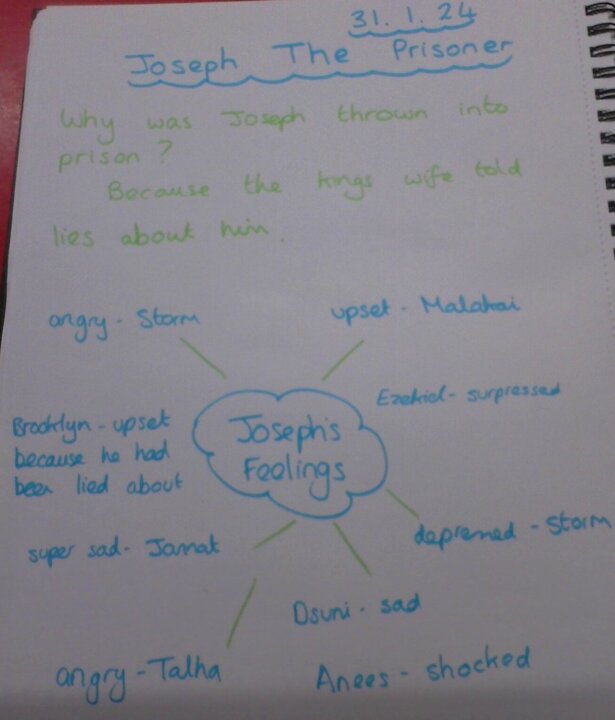 31.1.24
Joseph The Prisoner
Why was Joseph thrown into
prison?
Because the kings wife told
lies about him.
angry - Storm
upset - Malakai
Ezekiel - surpressed
Brooklyn - upset
because he had
been lied about
Joseph's
Feelings
super sad - Jannat
depressed - Storm
Dsuni - sad
angry - Talha
Anees - shocked